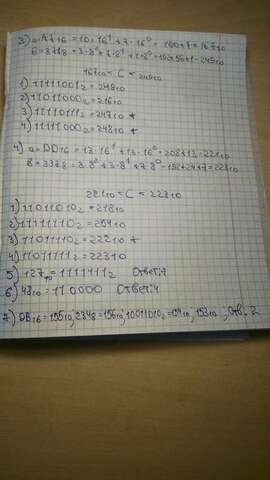 3) a=A7₁₆ = 10·16¹+7·16⁰ = 160+7=167₁₀
B=371₈ = 3·8²+7·8¹+1·8⁰=192+56+1=249₁₀
167₁₀ < C < 249₁₀
1) 11111001₂ = 249₁₀
2) 11011000₂ = 216₁₀
3) 11110111₂ = 247₁₀ *
4) 11111000₂ = 248₁₀ *
4) a=DD₁₆ = 13·16¹+13·16⁰=208+13=221₁₀
B=337₈ = 3·8²+3·8¹+7·8⁰=192+24+7=223₁₀
221₁₀ < C < 223₁₀
1) 11011010₂ = 218₁₀
2) 11111110₂ = 254₁₀
3) 11011110₂ = 222₁₀ *
4) 11011111₂ = 223₁₀
5) 127₁₀ = 1111111₂ Ответ:7
6) 48₁₀ = 110000 Ответ:4
7) 9B₁₆ = 155₁₀; 234₈ = 156₁₀; 10011010₂ = 154₁₀; 153₁₀; Отв. 2